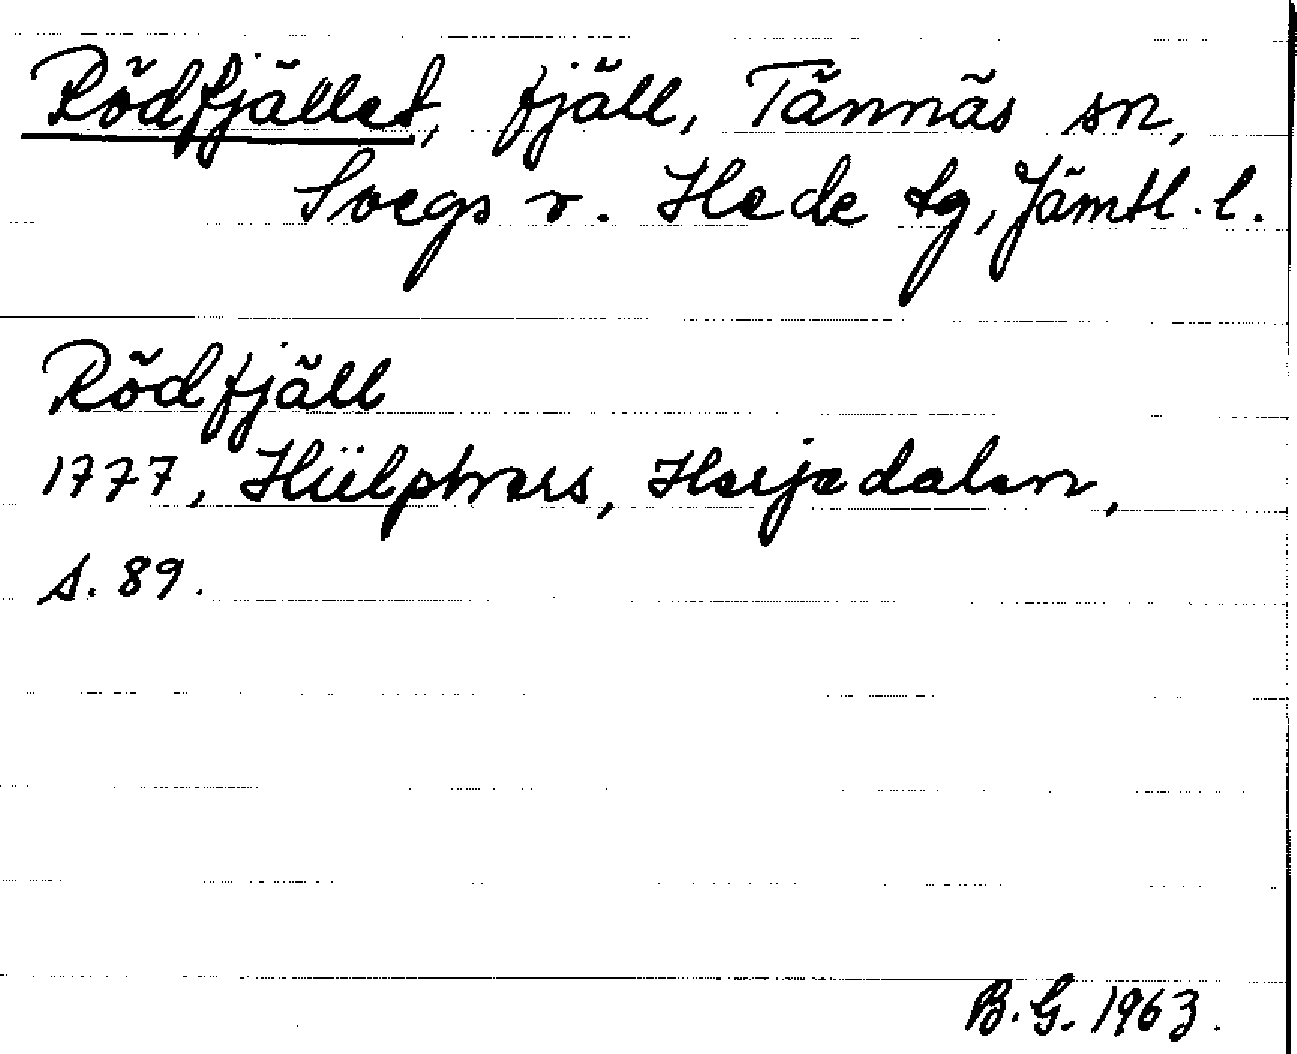 Rödfjället, fjäll, Tännäs sn,
Svegs v. Hede tg, Jämtl. l.
Rödfjäll
1777, Hülphers, Herjedalen,
s. 89.
B. G. 1963.